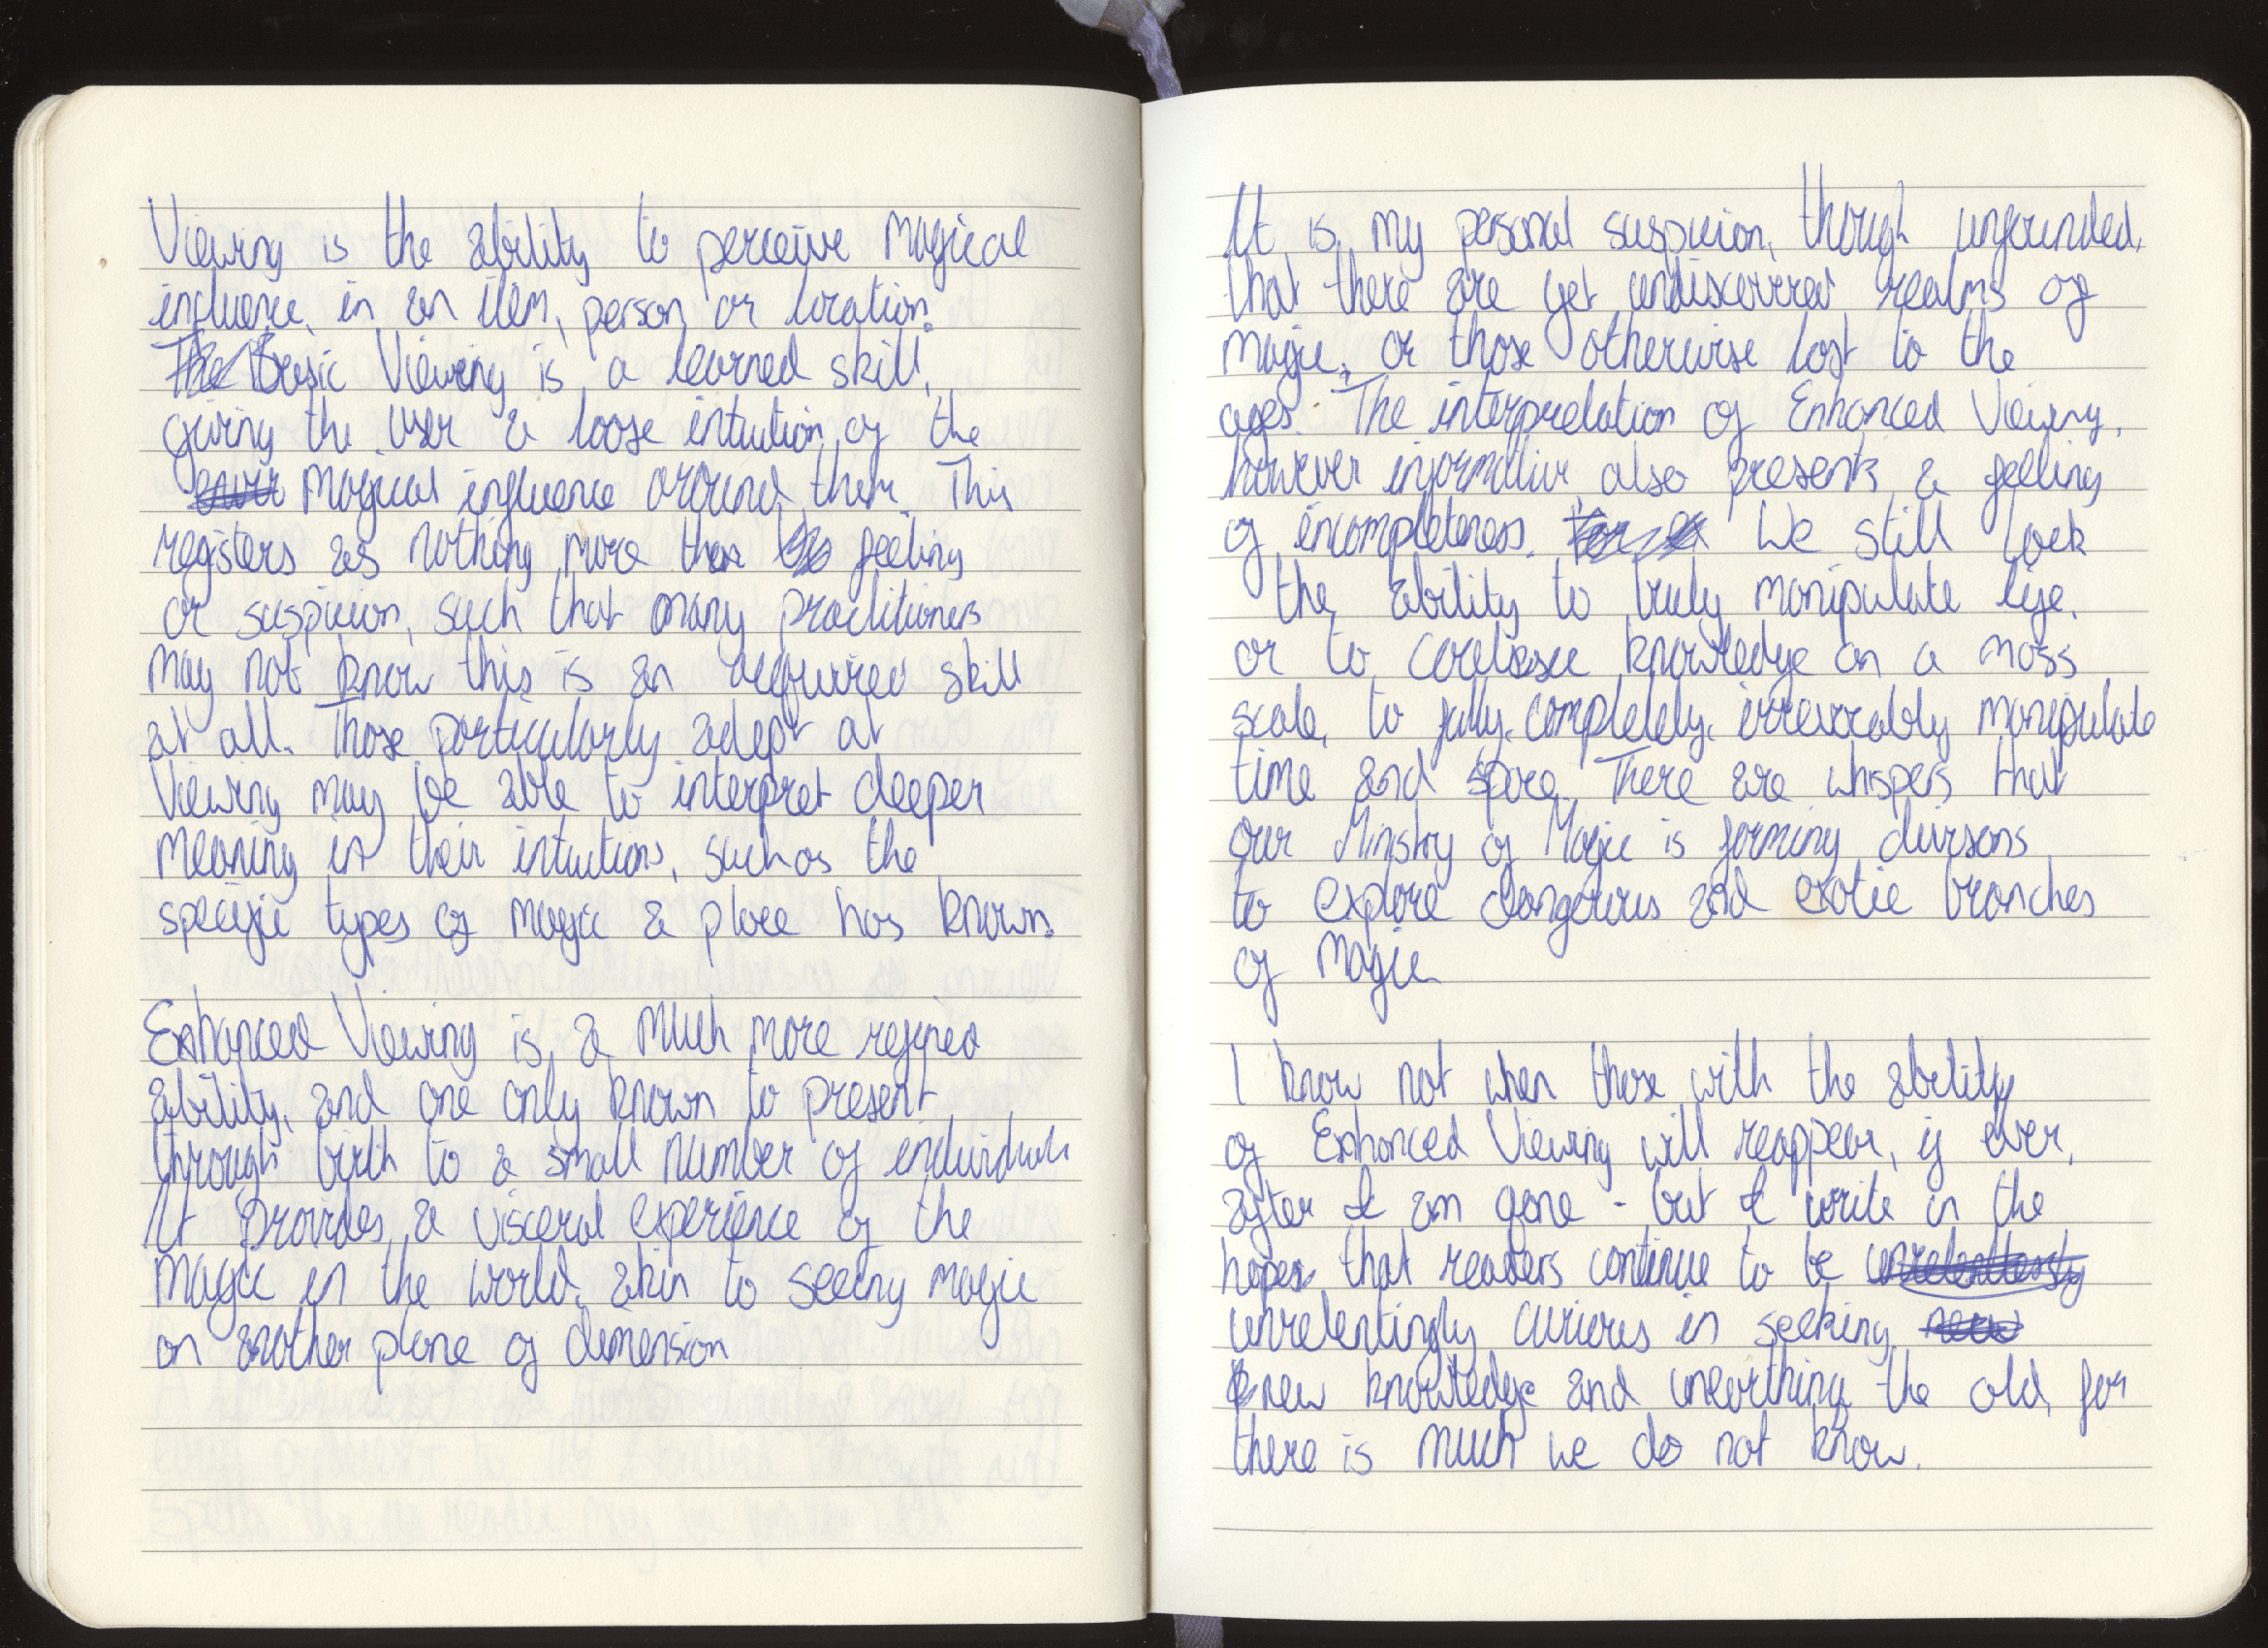 Viewing is the ability to perceive magical
influence in an item, person or location.
The Basic Viewing is a learned skill,
giving the user a loose intuition of the
magical influence around them. This
registers as nothing more than feeling
or suspicion, such that many practitioners
may not know this is an acquired skill
at all. Those particularly adept at
Viewing may be able to interpret deeper
meaning in their intuitions, such as the
specific types of magic a place has known.
Enhanced Viewing is a much more refined
ability, and one only known to present
through birth to a small number of individuals
It provides a visceral experience of the
magic in the world, akin to seeing magic
on another plane of dimension
It is my personal suspicion, though unfounded,
that there are yet undiscovered realms of
magic, or those otherwise lost to the
ages. The interpretation of Enhanced Viewing,
however informative also presents a feeling
of incompleteness. We still lack
the ability to truly manipulate life,
or to coalesce knowledge on a mass
scale, to fully, completely, irrevocably manipulate
time and space. There are whispers that
our Ministry of Magic is forming divisons
to explore dangerous and exotic branches
of magic
I know not when those with the ability
of Enhanced Viewing will reappear, if ever,
after I am gone - but I write in the
hopes that readers continue to be unrelentlessly
unrelentingly curious in seeking new
new knowledge and unearthing the old, for
there is much we do not know.